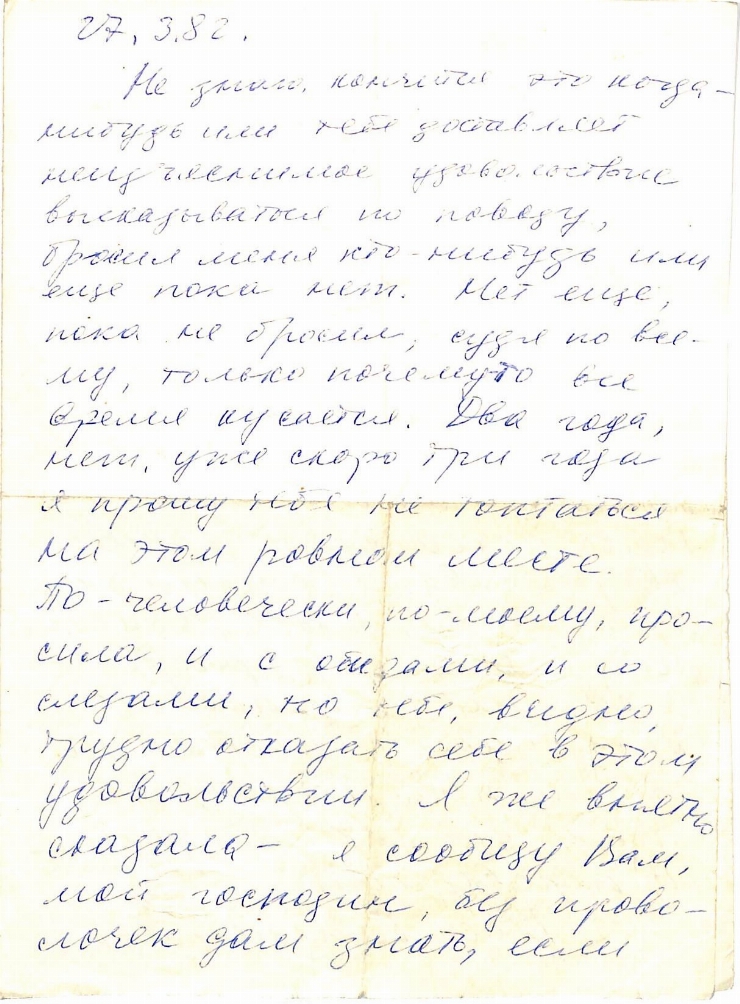 27.3.82.
Не знаю, кончится это когда-
нибудь или тебе доставляет
неизъяснимое удовольствие
высказываться по поводу,
бросил меня кто-нибудь или
еще пока нет. Нет еще,
пока не бросил, судя по все-
му, только почемуто все
время кусается. Два года,
нет, уже скоро три года
я прошу тебя не топтаться
на этом ровном месте.
По-человечески, по-моему, про-
сила, и с обидами, и со
слезами, но тебе, видно,
трудно отказать себе в этом
удовольствии. Я же внятно
сказала - я сообщу Вам,
мой господин, без прово-
лочек дам знать, если